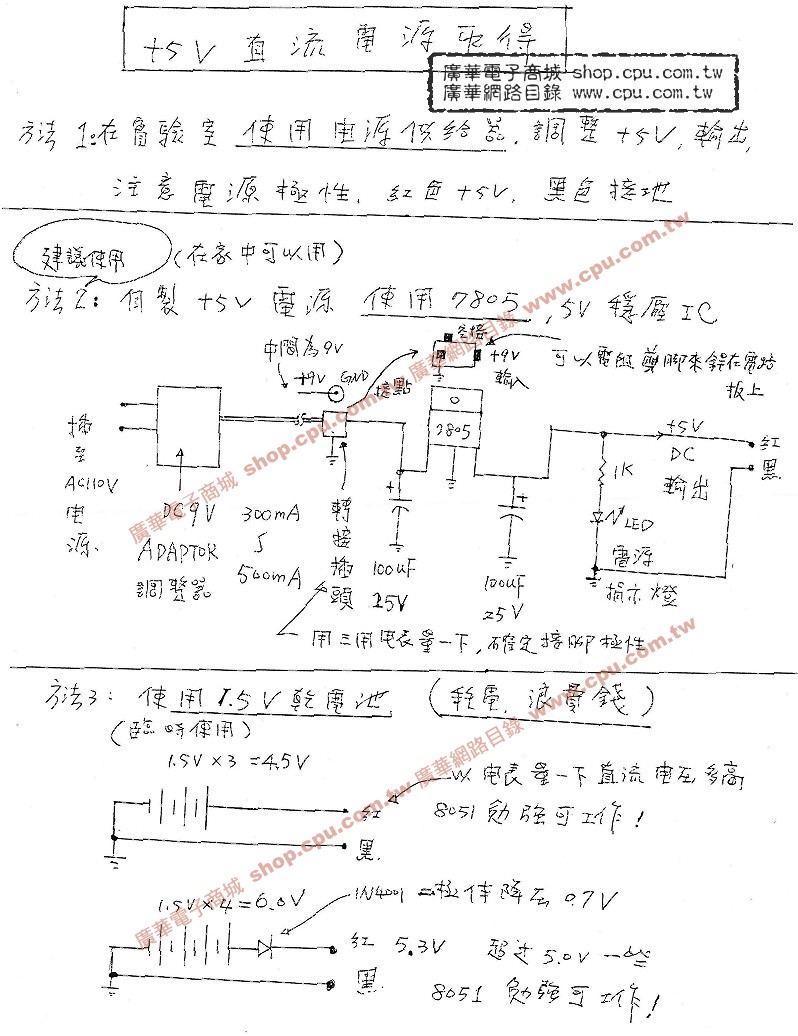 +5V 直流電源取得
廣華電子商城 shop.cpu.com.tw
廣華網路目錄 www.cpu.com.tw
方法1:在實驗室 使用电源供給器, 調整 +5V, 輸出,
注意電源極性, 紅色+5V, 黑色接地
建議使用
(在家中可以用)
方法2: 自製 +5V 電源 使用 7805, 5V 穩壓 IC
中間為9V
+9V GND
接點
空接
+9V
輸入
可以電阻剪腳來銲在電路
板上
插至AC110V电源
DC9V
ADAPTOR
調整器
300mA
∫
500mA
轉接插頭
7805
100uF
25V
100uF
25V
1K
LED
電源
指示燈
+5V
DC
輸出
紅
黑
用三用电表量一下, 確定接腳極性
方法3: 使用 1.5V 乾電池, (耗電, 浪費錢)
(臨時使用)
1.5V×3=4.5V
紅
黑
以电表量一下直流电压多高
8051 勉強可工作!
1.5V×4=6.0V
1N4001 二极体降压 0.7V
紅 5.3V 超过 5.0V 一些
黑
8051 勉強可工作!
廣華電子商城 shop.cpu.com.tw 廣華網路目錄 www.cpu.com.tw
廣華電子商城 shop.cpu.com.tw 廣華網路目錄 www.cpu.com.tw